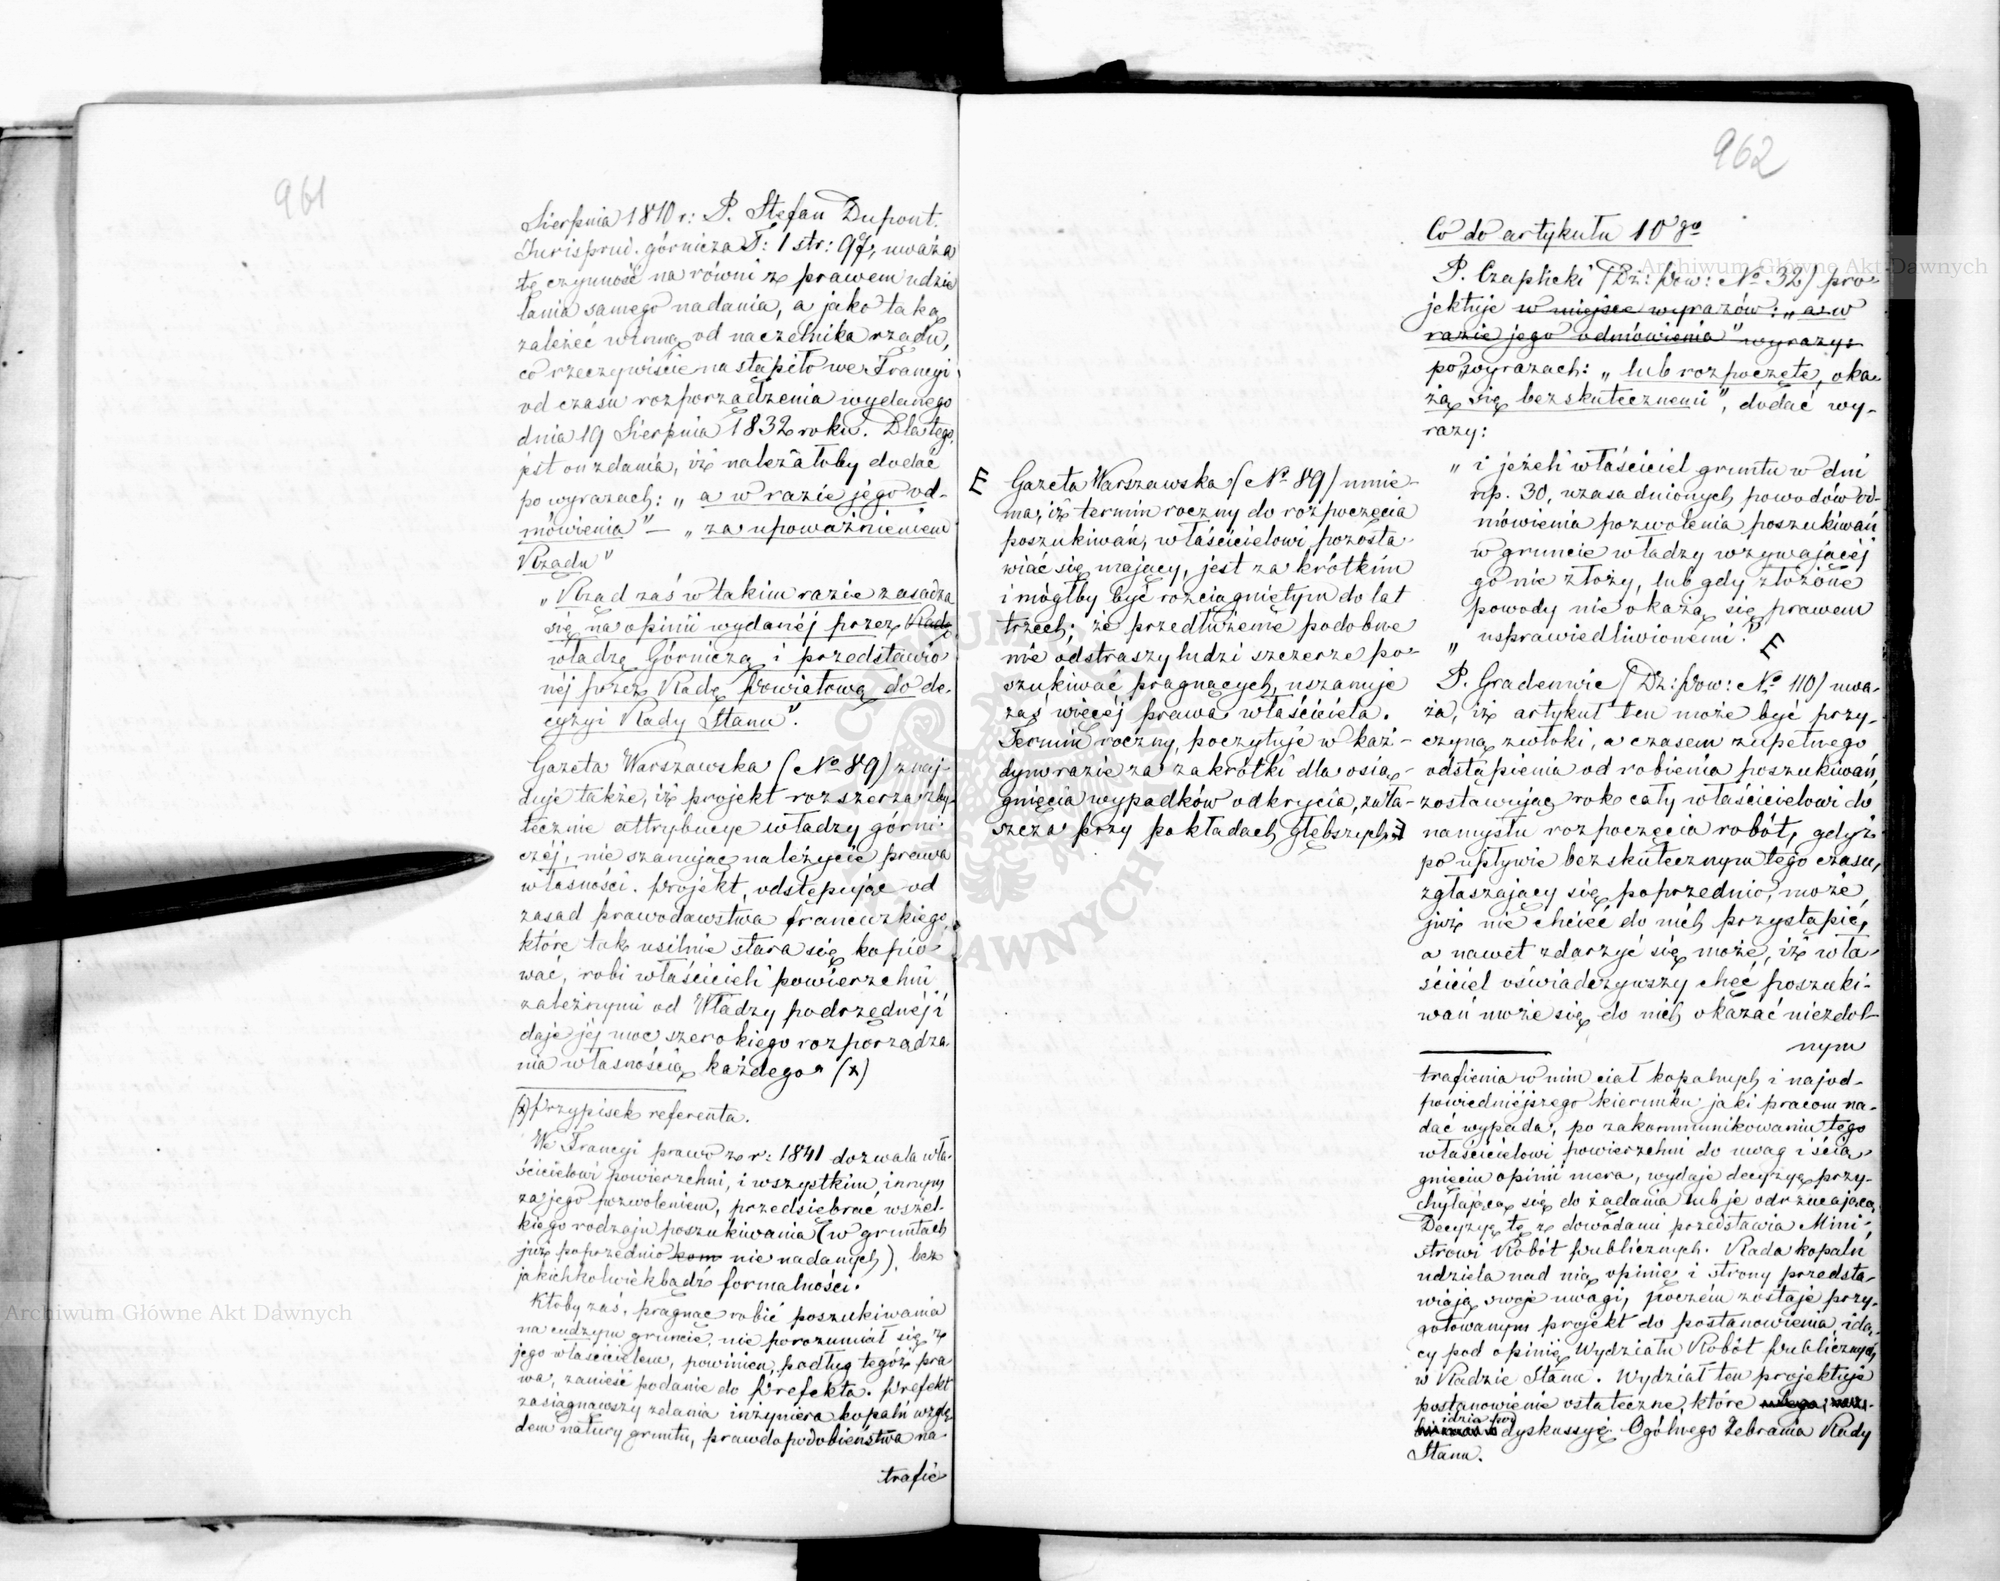 961
Sierpnia 1810 r: P. Stefan Dupont.
Jurisprud. górnicza T: 1 str: 97, uważa
tę czynność na równi z prawem udzie
lania samego nadania, a jako taką
zależéć winną od naczelnika rządu,
co rzeczywiście nastąpiło we Francyi
od czasu rozporządzenia wydanego
dnia 19 Sierpnia 1832 roku. Dla tego,
jest on zdania, iż należałoby dodać
po wyrazach: „a w razie jego od-
mówienia" — „za upoważnieniem
Rządu"
„Rząd zaś w takim razie zasadza
się na opinii wydanéj przez Radę
władzę Górniczą i przedstawio
néj przez Radę Powiatową do de-
cyzyi Rady Stanu".
Gazeta Warszawska (No 89) znaj-
duje także, iż projekt rozszerza zby
tecznie attrybucye władzy górni-
czéj, nie szanując należycie prawa
własności. Projekt, odstępując od
zasad prawodawstwa francuzkiego,
które tak usilnie stara się kopio
wać, robi właścicieli powierzchni
zależnymi od Władzy podrzędnéj i
daje jéj moc szerokiego rozporządza
nia własnością każdego. (x)
(x) Przypisek referenta.
We Francyi prawo z r: 1841 dozwala wła-
ścicielowi powierzchni, i wszystkim innym
za jego pozwoleniem, przedsiębrać wszel-
kiego rodzaju poszukiwania (w gruntach
już poprzednio kom nie nadanych), bez
jakichkolwiekbądź formalności.
Ktoby zaś, pragnąc robić poszukiwania
na cudzym gruncie, nie porozumiał się z
jego właścicielem, powinien, podług tegóż pra
wa, zanieść podanie do Prefekta. Prefekt
zasiągnąwszy zdania inżyniera kopalń wzglę
dem natury gruntu, prawdopodobieństwa na-
trafie
E Gazeta Warszawska (No 89) mnie-
ma, iż termin roczny do rozpoczęcia
poszukiwań, właścicielowi pozosta
wiać się mający, jest za krótkim
i mógłby być rozciągniętym do lat
trzech; że przedłużenie podobne
nie odstraszy ludzi szczerze po-
szukiwać pragnących, uszanuje
zaś więcéj prawa właściciela.
Termin roczny, poczytuje w każ-
dym razie za zakrótki dla osią-
gnięcia wypadków odkrycia, zwła-
szcza przy pokładach głębszych.
962
Co do artykułu 10go
P. Czaplicki (Dz: Pow: No 32) pro-
jektuje w miejsce wyrazów: „a w
razie jego odmówienia" wyrazy:
po wyrazach: „lub rozpoczęte, oka-
żą się bezskutecznemi", dodać wy-
razy:
„i jeżeli właściciel gruntu w dni
np. 30, uzasadnionych powodów od-
mówienia pozwolenia poszukiwań
w gruncie władzy wzywającéj
go nie złoży, lub gdy złożone
powody nie okażą się prawem
„usprawiedliwionemi." E
P. Gradenwic (Dz: Pow: No 110) uwa-
ża, iż artykuł ten może być przy-
czyną zwłoki, a czasem zupełnego
odstąpienia od robienia poszukiwań,
zostawując rok cały właścicielowi do
namysłu rozpoczęcia robót, gdyż
po upływie bezskutecznym tego czasu,
zgłaszający się poprzednio, może
już nie chcieć do nich przystąpić,
a nawet zdarzyć się może, iż wła-
ściciel oświadczywszy chęć poszuki-
wań może się do nich okazać niezdol-
nym
trafienia w nim ciał kopalnych i najod-
powiedniéjszego kierunku jaki pracom na-
dać wypada, po zakommunikowaniu tego
właścicielowi powierzchni do uwag i ścią-
gnięciu opinii mera, wydaje decyzyę przy-
chylającą się do żądania lub je odrzucającą.
Decyzyę tę z dowodami przedstawia Mini-
strowi Robót Publicznych. Rada kopalń
udziela nad nią opinię i strony przedsta-
wiają swoje uwagi, poczém zostaje przy-
gotowanym projekt do postanowienia, idą-
cy pod opinię Wydziału Robót Publicznych
w Radzie Stanu. Wydział ten projektuje
postanowienie ostateczne, które
idzie pod
dyskussyę Ogólnego Zebrania Rady
Stanu.
Archiwum Główne Akt Dawnych
Archiwum Główne Akt Dawnych